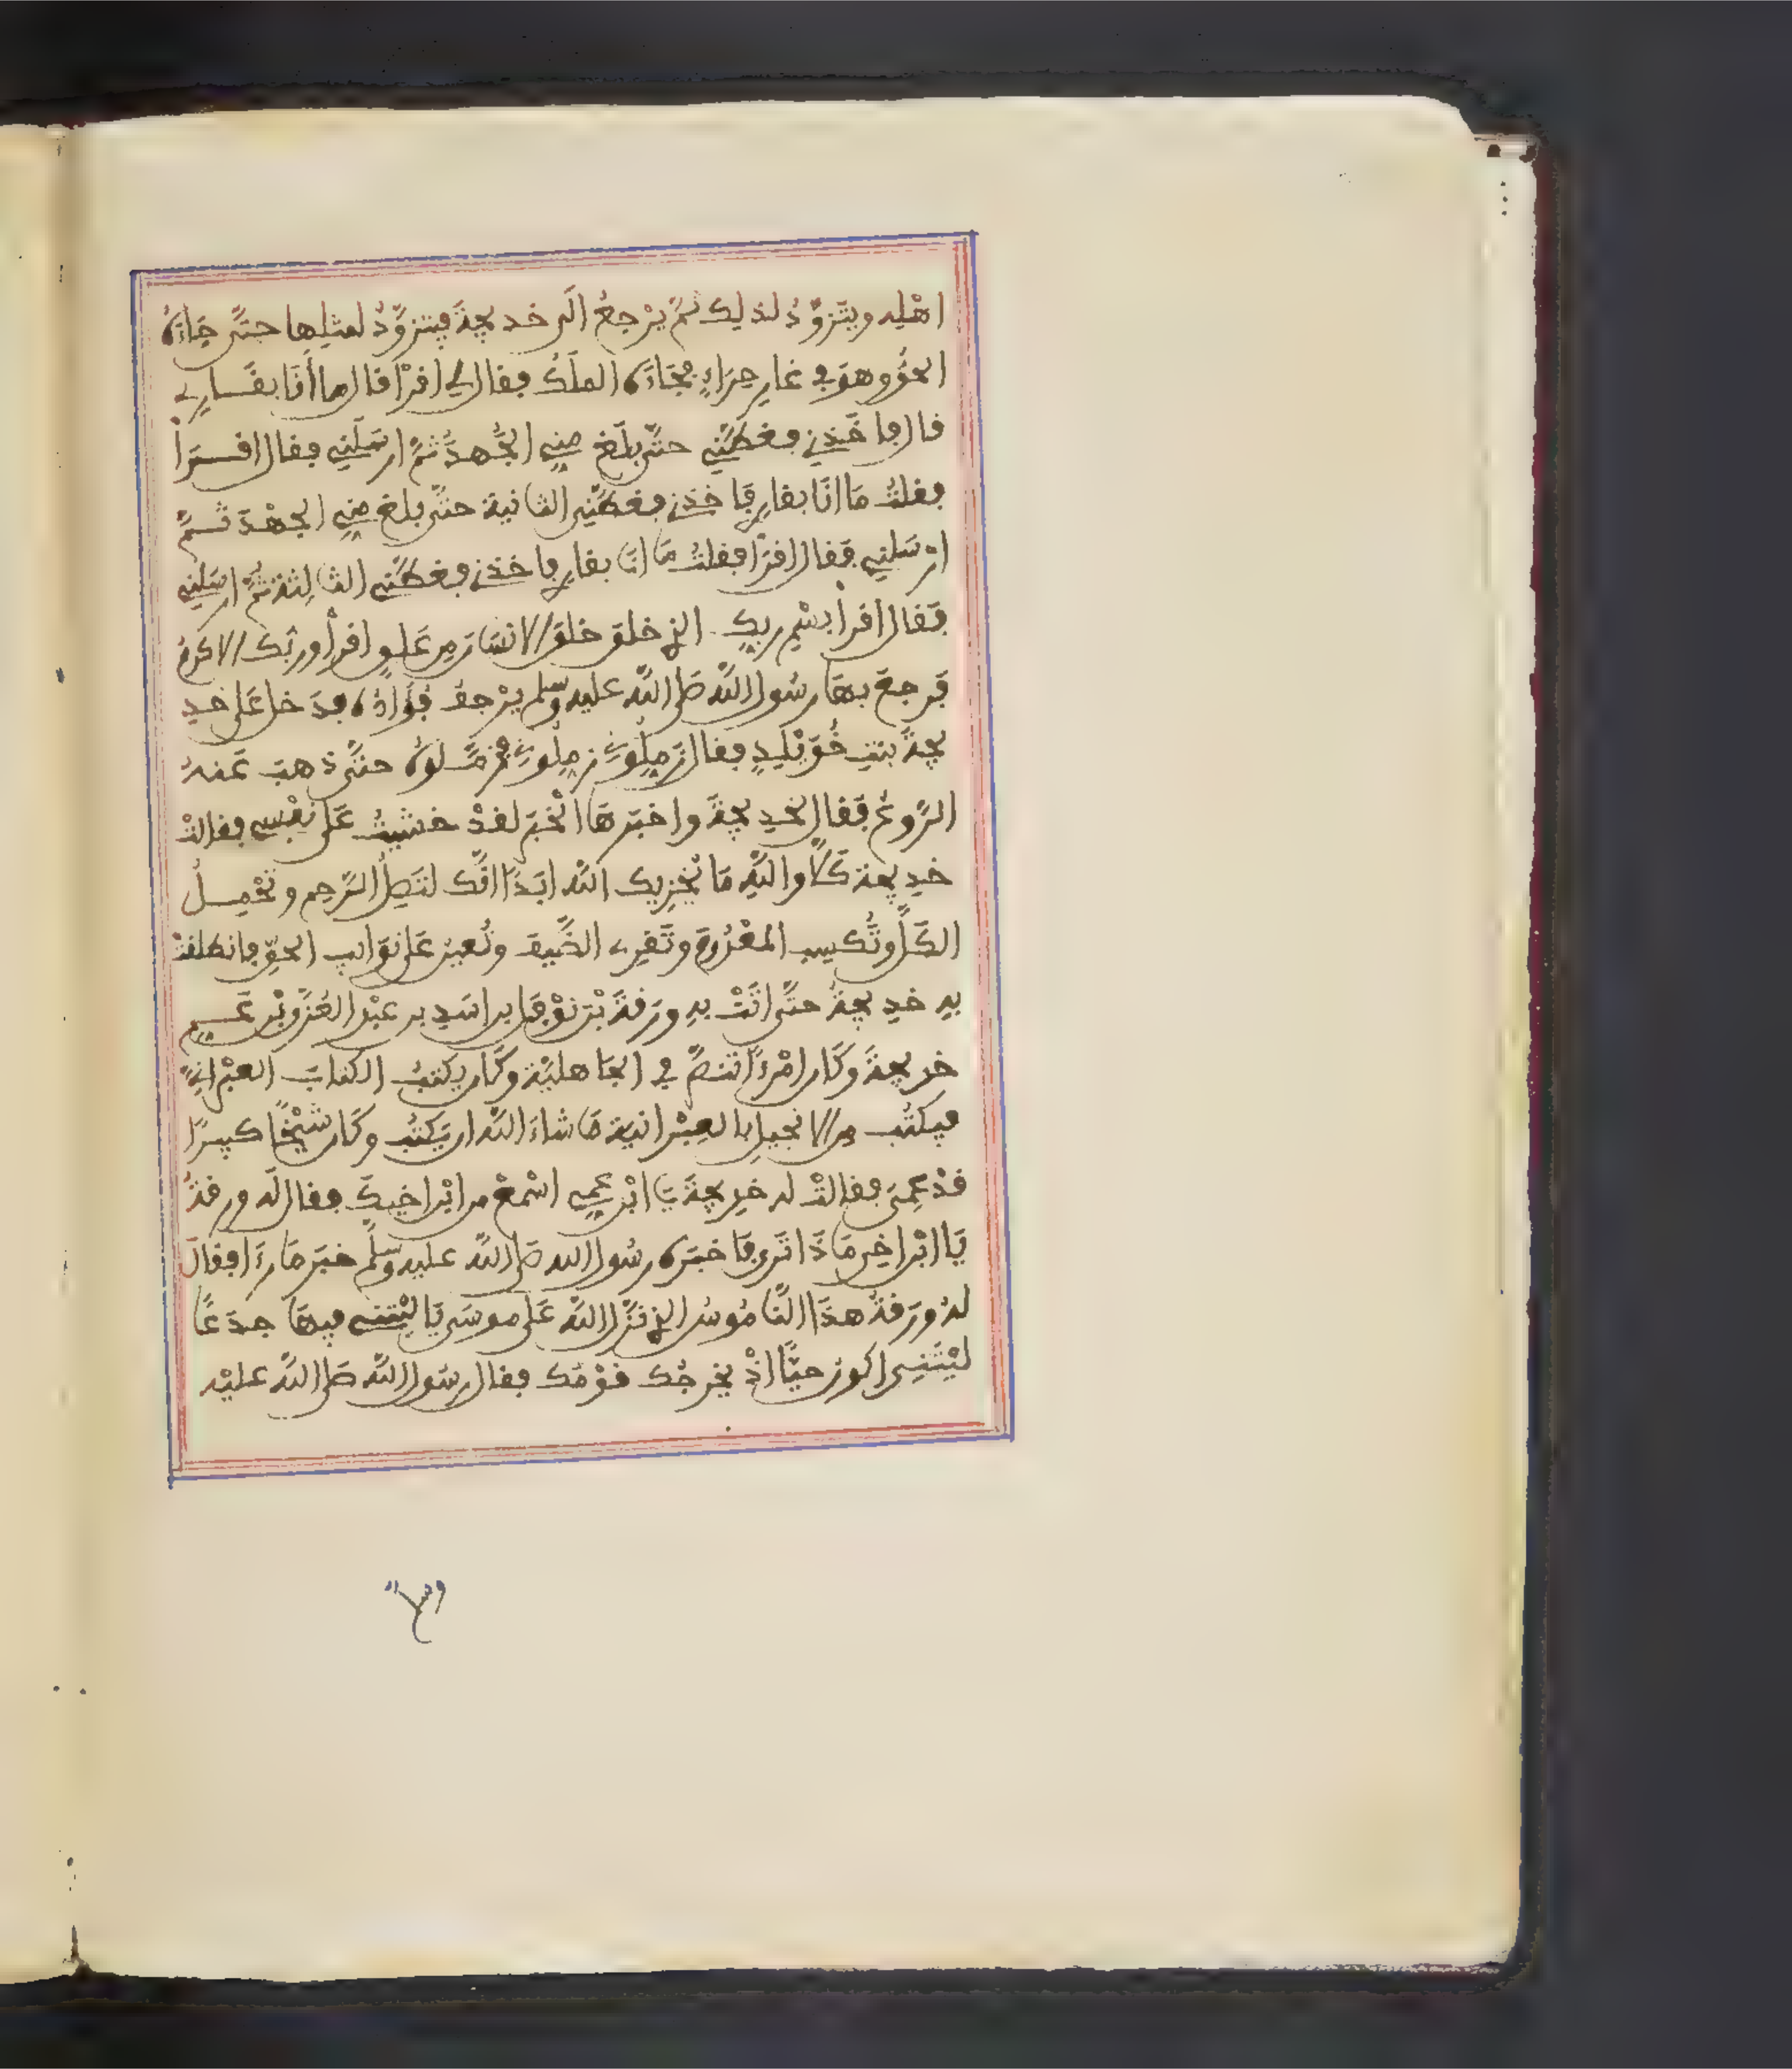 اهْلِه ويتَزوَّدُ لذلِك ثمَّ يرْجعُ الَى خديجةَ فيتزوَّدُ لمثلِها حتَّى جَاءَهُ
الحقُّ وهوَ في غارِ حِرَاءٍ فجَاءَهُ الملَكُ فقال له اقرَأْ قال ما أنَا بقَارِئٍ
قال فأخَذني فغطَّنِي حتَّى بلَغ مِنِي الجُهدَ ثمَّ ارسَلَنِي فقال اقرَأْ
فقلتُ مَا انَا بقارِئٍ فَأخذنِي فغطَّنِي الثانية حتَّى بلغ مِنِي الجهْدَ ثمَّ
ارْسَلنِي فَقال اقرَأْ فقلتُ مَا انَا بقارِئٍ فأخذنِي فغطَّنِي الثالِثة ثمَّ ارسَلنِي
فَقال اقرأْ بسْمِ ربِك الذِي خلق خلق الانسَان مِن عَلقٍ اقرأْ وربُّك الاكرمُ
فَرجعَ بهَا رسُول اللَّه صَلى اللَّه عليه وسلم يرْجفُ فُؤَادُهُ فدَخل عَلى خدِ
يجةَ بنتِ خُوَيْلدٍ فقال زَمِلُونِي زمِلُونِي فزمَّلُوهُ حتَّى ذهبَ عَنهُ
الرَّوعُ فَقال لخدِيجةَ واخبَرهَا الْخبَر لقدْ خشيتُ عَلى نفْسِي فقالتْ
خدِيجة كَلَّا واللَّهِ مَا يُخزِيك اللَّه ابَدًا انَّك لتَصِلُ الرَّحِم وتحْمِلُ
الكَلَّ وتُكسِب المعْدُومَ وتَقرِي الضَّيفَ وتُعينُ عَلى نوَائبِ الحقِّ فانطلقتْ
بهِ خدِيجةُ حتَّى اتَتْ بهِ ورَقةَ بْنَ نوْفَل بن اسَدِ بن عبْد العُزَّى بْن عَمِ
خديجةَ وكَان امْرءًا تنصَّرَ في الجَاهليَّة وكَان يكتبُ الكتابَ العبْرانِيَّ
فيكتُب من الانجيلِ بالعِبْرانية مَا شاءَ اللَّه ان يَكتُب وكَان شيْخًا كبيرًا
قدْ عمِيَ فقالتْ له خدِيجةُ يَا ابْن عمِي اسْمعْ من ابْن اخِيكَ فقال له ورقةُ
يَا ابْن اخِي مَاذَا تَرى فَأخبَرهُ رسُول الله صَلى اللَّه عليه وسلَّم خبَر مَا رءَا فقالَ
لهُ ورَقةُ هذَا النَّامُوسُ الذِي نَزَّل اللَّه عَلى موسَى يَا ليْتنِي فيهَا جذَعًا
ليْتَنِي اكون حيًّا اذْ يخرجُك قوْمُك فقال رسُول اللَّه صَلى اللَّه عليْه
وسلم